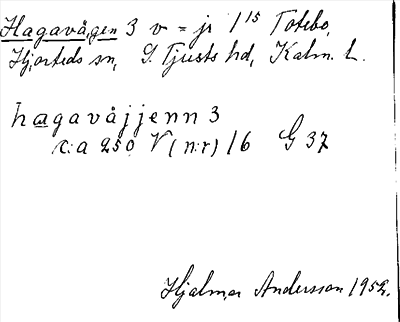 Hagavågen 3 v = ji 1 15 Totebo,
Hjorteds sn, S. Tjusts hd, Kalm. L.
hagavåjjenn 3
c:a 250 V (n:r) 16 G 37
Hjalmar Andersson 1952.